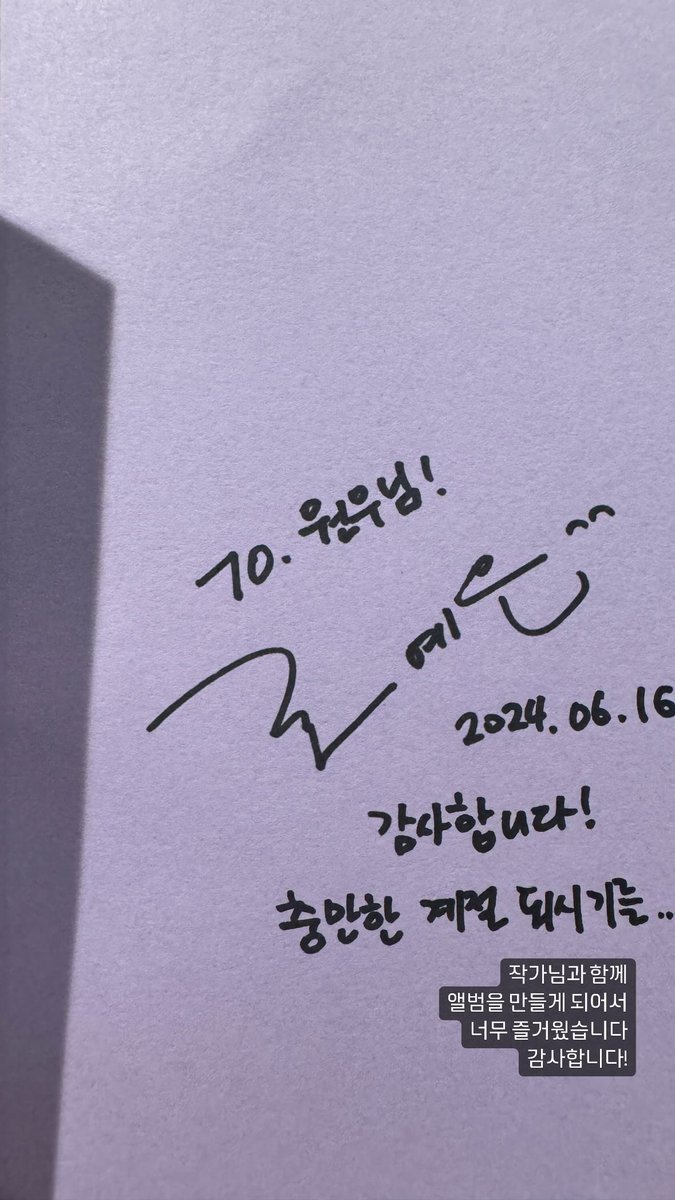 To. 원우님!
예은
2024.06.16
감사합니다!
충만한 계절 되시기를..
작가님과 함께
앨범을 만들게 되어서
너무 즐거웠습니다
감사합니다!